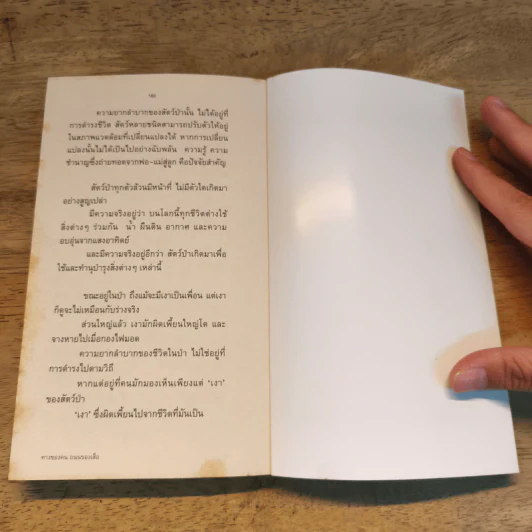 ความยากลำบากของสัตว์ป่านั้น ไม่ได้อยู่ที่
การดำรงชีวิต สัตว์หลายชนิดสามารถปรับตัวให้อยู่
ในสภาพแวดล้อมที่เปลี่ยนแปลงได้ หากการเปลี่ยน
แปลงนั้นไม่ได้เป็นไปอย่างฉับพลัน ความรู้ ความ
ชำนาญซึ่งถ่ายทอดจากพ่อ-แม่สู่ลูก คือปัจจัยสำคัญ
สัตว์ป่าทุกตัวล้วนมีหน้าที่ ไม่มีตัวใดเกิดมา
อย่างสูญเปล่า
มีความจริงอยู่ว่า บนโลกนี้ทุกชีวิตต่างใช้
สิ่งต่างๆ ร่วมกัน น้ำ ผืนดิน อากาศ และความ
อบอุ่นจากแสงอาทิตย์
และมีความจริงอยู่อีกว่า สัตว์ป่าเกิดมาเพื่อ
ใช้และทำนุบำรุงสิ่งต่างๆ เหล่านี้
ขณะอยู่ในป่า ถึงแม้จะมีเงาเป็นเพื่อน แต่เงา
ก็ดูจะไม่เหมือนกับร่างจริง
ส่วนใหญ่แล้ว เงามักผิดเพี้ยนใหญ่โต และ
จางหายไปเมื่อกองไฟมอด
ความยากลำบากของชีวิตในป่า ไม่ใช่อยู่ที่
การดำรงไปตามวิถี
หากแต่อยู่ที่คนมักมองเห็นเพียงแต่ 'เงา'
ของสัตว์ป่า
'เงา' ซึ่งผิดเพี้ยนไปจากชีวิตที่มันเป็น
ทางของคน ถนนของเสือ